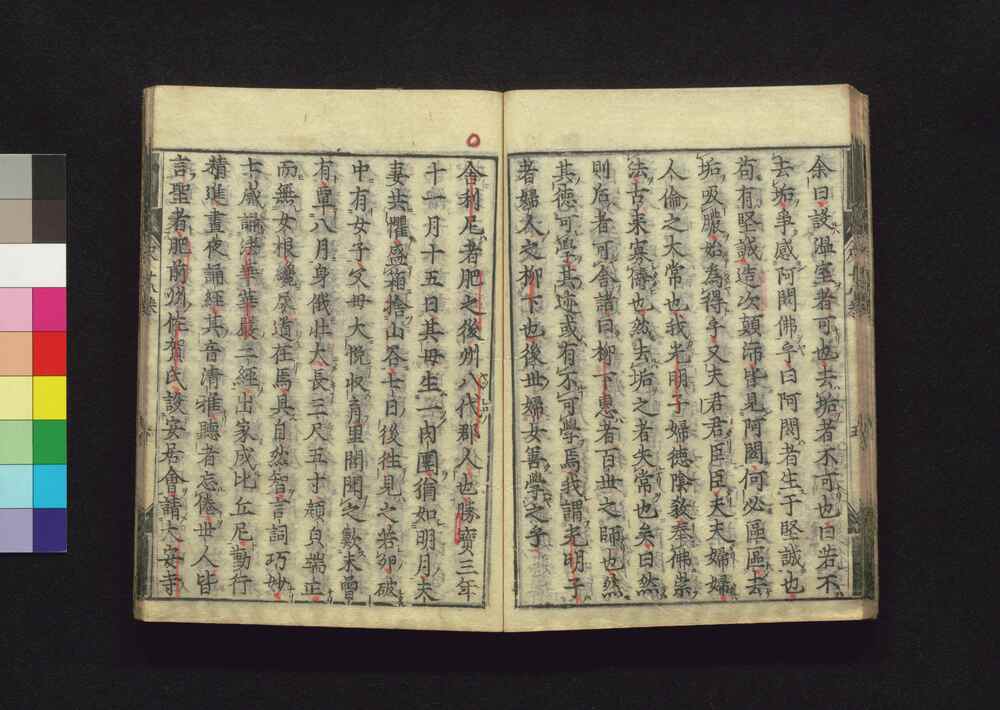 余曰設溫室者可也去垢者不可也曰若不
去垢爭感阿閦佛乎曰阿閦者生于堅誠也
苟有堅誠造次顛沛皆見阿閦何必區區去
垢吸膿始為得乎又夫君君臣臣夫夫婦婦
人倫之大常也我光明子婦德陰教奉佛崇
法古來寡儔也然去垢之者失常也矣曰然
則后者可舍諸曰柳下惠者百世之師也然
其德可學其迹或有不可學焉我謂光明子
者婦人之柳下也後世婦女善學之乎
舍利尼者肥之後州八代郡人也勝寶三年
十一月十五日其母生一肉團猶如明月夫
妻共懼盛箱捨山谷七日後往見之若卵破
中有女子父母大悅收育里閭聞之歎未曾
有章八月身俄壯大長三尺五寸頰貞端正
而無女根纔尿道在焉具自然智言詞巧妙
七歲誦法華華嚴二經出家成比丘尼勤行
精進晝夜誦經其音清雅聽者忘倦世人皆
言聖者肥前州佐賀氏設安居會請大安寺